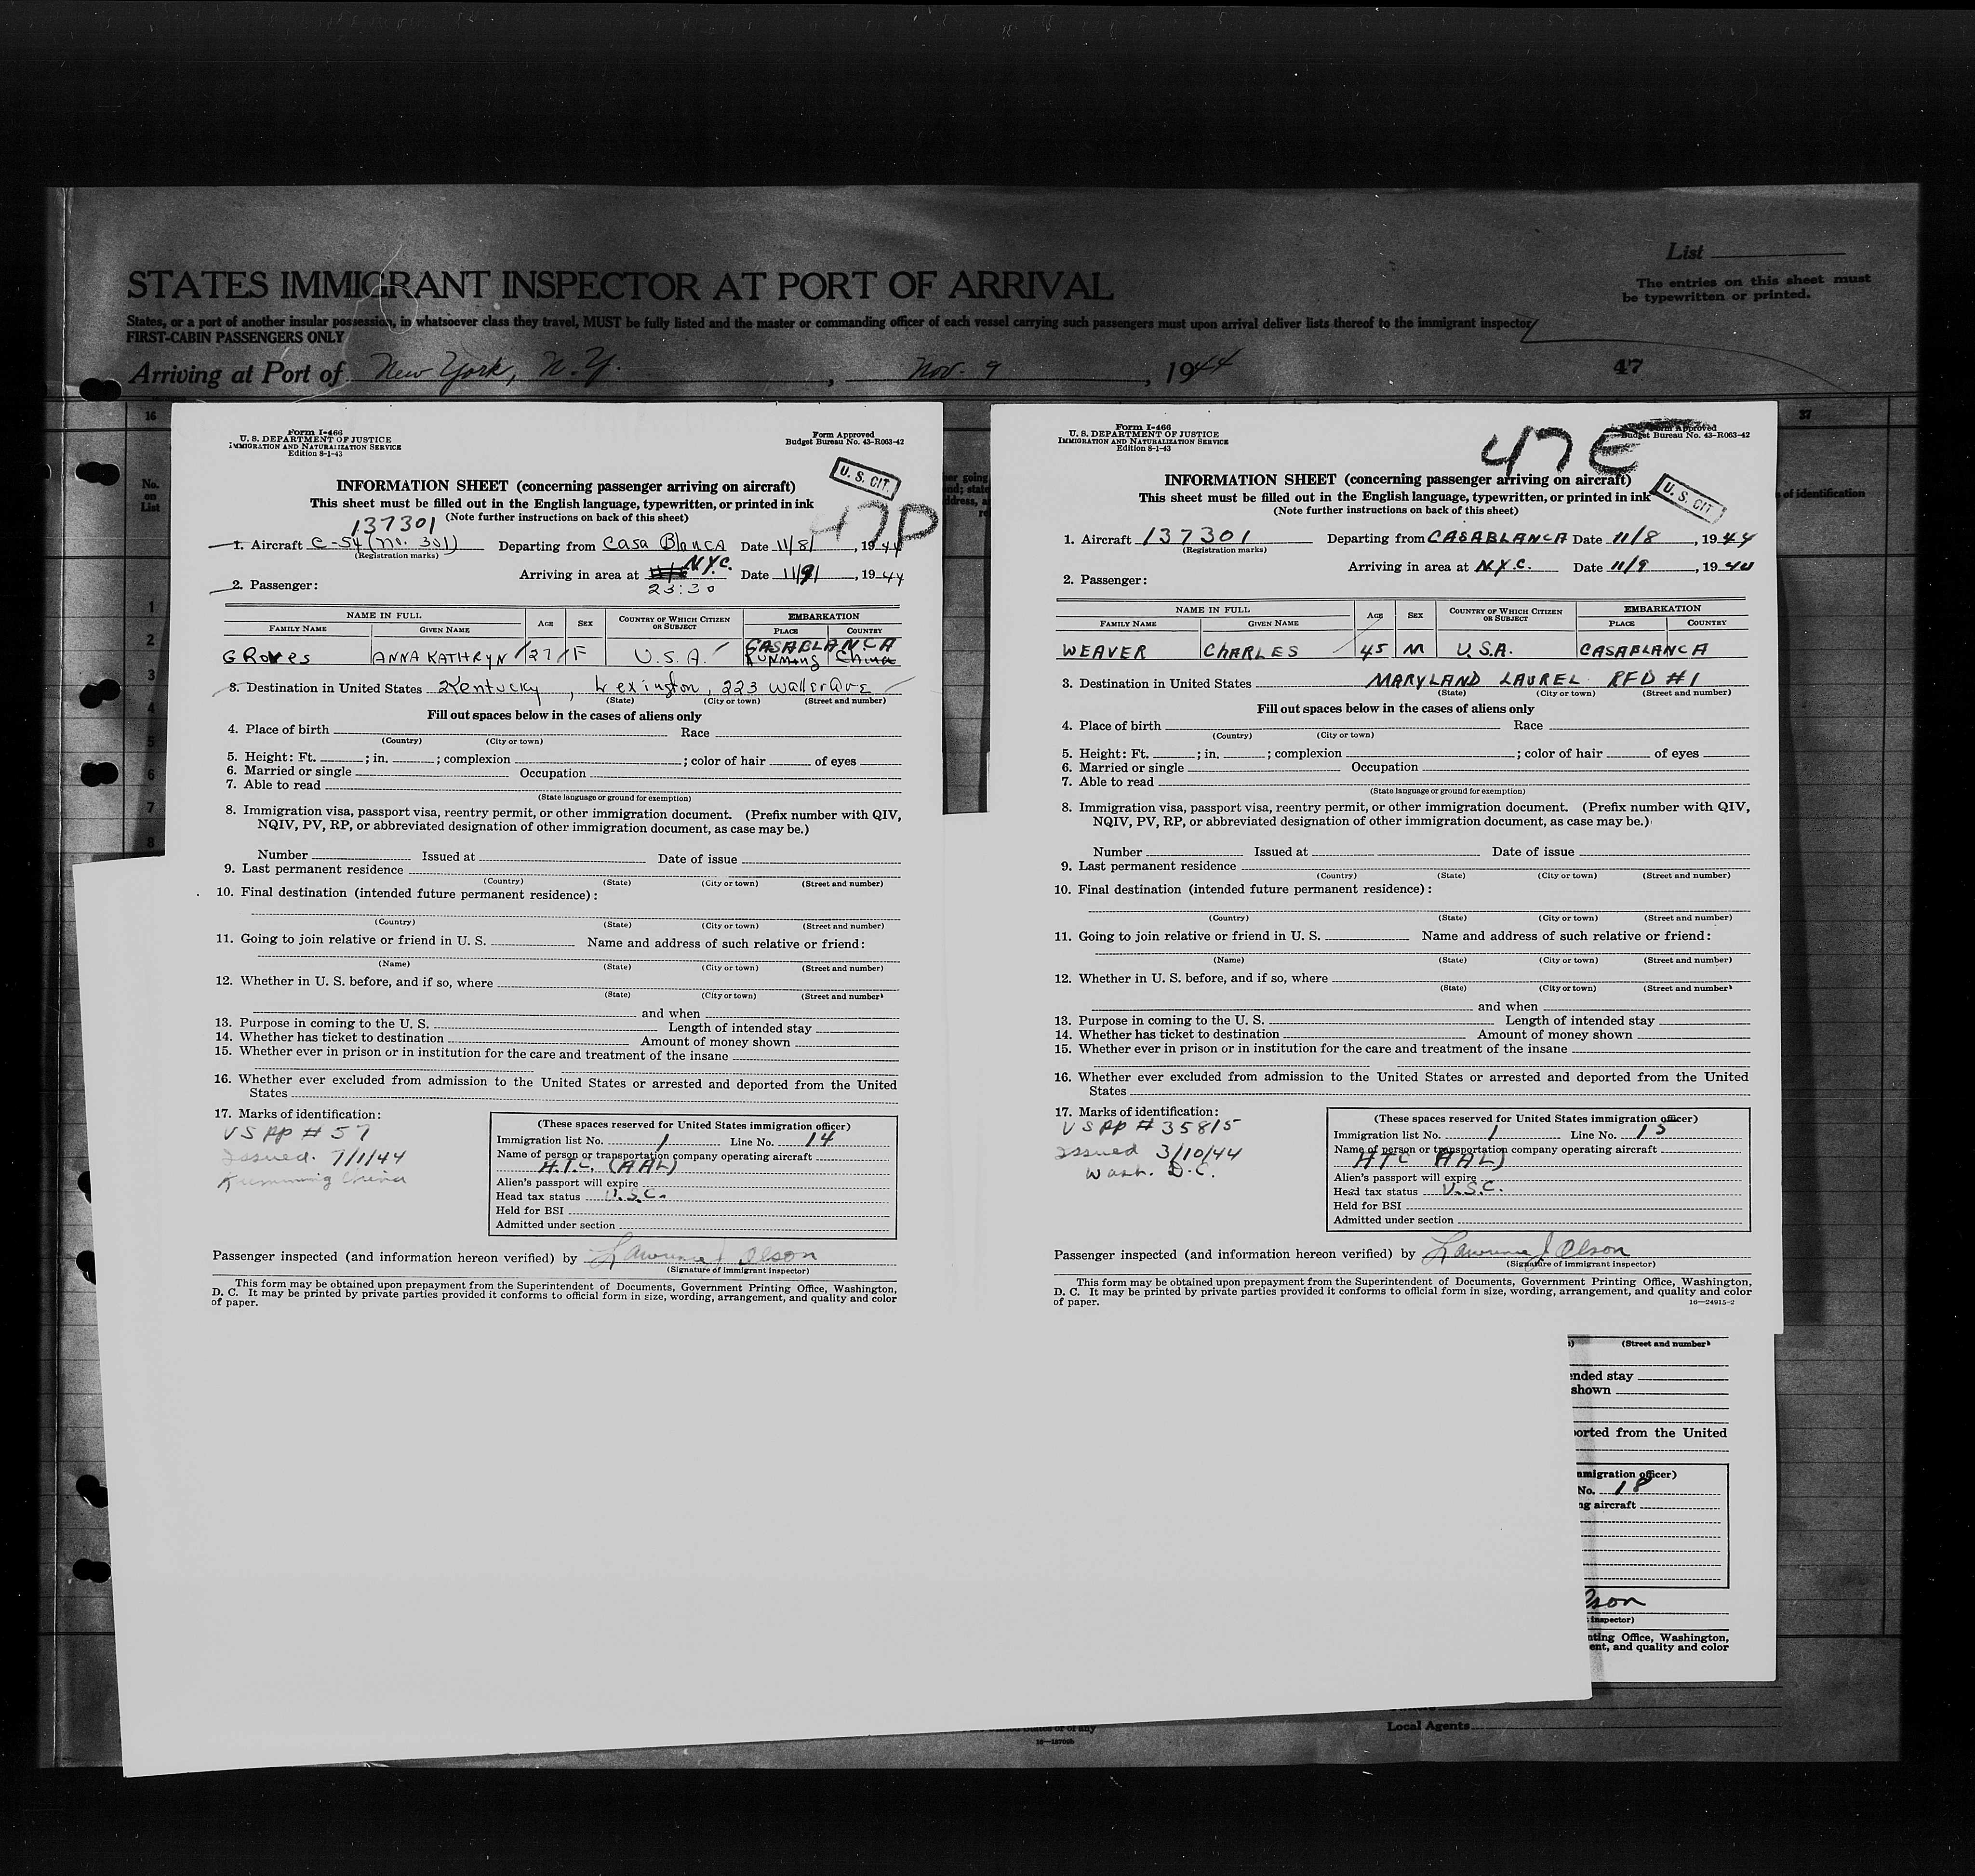 List
The entries on this sheet must
be typewritten or printed.
STATES IMMIGRANT INSPECTOR AT PORT OF ARRIVAL
States, or a port of another insular possession, in whatsoever class they travel, MUST be fully listed and the master or commanding officer of each vessel carrying such passengers must upon arrival deliver lists thereof to the immigrant inspector
FIRST-CABIN PASSENGERS ONLY
Arriving at Port of New York, N.Y. , Nov. 9 , 1944
47
16
37
No.
on
List
1
2
3
4
5
6
7
8
of identification
Form I-466
U. S. DEPARTMENT OF JUSTICE
IMMIGRATION AND NATURALIZATION SERVICE
Edition 8-1-43
Form Approved
Budget Bureau No. 43-R063-42
U. S. CIT.
47D
INFORMATION SHEET (concerning passenger arriving on aircraft)
This sheet must be filled out in the English language, typewritten, or printed in ink
(Note further instructions on back of this sheet)
137301
1. Aircraft C-54 (no. 301) Departing from Casa Blanca Date 11/8/ , 1944
(Registration marks)
Arriving in area at N.Y.C. Date 11/9/ , 1944
23:30
2. Passenger:
NAME IN FULL AGE SEX COUNTRY OF WHICH CITIZEN OR SUBJECT EMBARKATION
FAMILY NAME GIVEN NAME PLACE COUNTRY
CASABLANCA
GROVES ANNA KATHRYN 27 F U.S.A. KUNMING China
3. Destination in United States Kentucky, Lexington, 223 Waller Ave
(State) (City or town) (Street and number)
Fill out spaces below in the cases of aliens only
4. Place of birth Race
(Country) (City or town)
5. Height: Ft. ; in. ; complexion ; color of hair of eyes
6. Married or single Occupation
7. Able to read
(State language or ground for exemption)
8. Immigration visa, passport visa, reentry permit, or other immigration document. (Prefix number with QIV,
NQIV, PV, RP, or abbreviated designation of other immigration document, as case may be.)
Number Issued at Date of issue
9. Last permanent residence
(Country) (State) (City or town) (Street and number)
10. Final destination (intended future permanent residence):
(Country) (State) (City or town) (Street and number)
11. Going to join relative or friend in U. S. Name and address of such relative or friend:
(Name) (State) (City or town) (Street and number)
12. Whether in U. S. before, and if so, where
(State) (City or town) (Street and number)
and when
13. Purpose in coming to the U. S. Length of intended stay
14. Whether has ticket to destination Amount of money shown
15. Whether ever in prison or in institution for the care and treatment of the insane
16. Whether ever excluded from admission to the United States or arrested and deported from the United
States
17. Marks of identification:
US PP # 57
Issued. 7/1/44
Kunming China
(These spaces reserved for United States immigration officer)
Immigration list No. 1 Line No. 14
Name of person or transportation company operating aircraft
H.T.C. (AAL)
Alien's passport will expire
Head tax status U.S.C.
Held for BSI
Admitted under section
Passenger inspected (and information hereon verified) by Lawrence J Olson
(Signature of immigrant inspector)
This form may be obtained upon prepayment from the Superintendent of Documents, Government Printing Office, Washington,
D. C. It may be printed by private parties provided it conforms to official form in size, wording, arrangement, and quality and color
of paper.
Form I-466
U. S. DEPARTMENT OF JUSTICE
IMMIGRATION AND NATURALIZATION SERVICE
Edition 8-1-43
Form Approved
Budget Bureau No. 43-R063-42
47E
U. S. CIT
INFORMATION SHEET (concerning passenger arriving on aircraft)
This sheet must be filled out in the English language, typewritten, or printed in ink
(Note further instructions on back of this sheet)
1. Aircraft 137301 Departing from CASABLANCA Date 11/8 , 1944
(Registration marks)
Arriving in area at N.Y.C. Date 11/9 , 1944
2. Passenger:
NAME IN FULL AGE SEX COUNTRY OF WHICH CITIZEN OR SUBJECT EMBARKATION
FAMILY NAME GIVEN NAME PLACE COUNTRY
WEAVER CHARLES 45 M U.S.A. CASABLANCA
3. Destination in United States MARYLAND LAUREL RFD #1
(State) (City or town) (Street and number)
Fill out spaces below in the cases of aliens only
4. Place of birth Race
(Country) (City or town)
5. Height: Ft. ; in. ; complexion ; color of hair of eyes
6. Married or single Occupation
7. Able to read
(State language or ground for exemption)
8. Immigration visa, passport visa, reentry permit, or other immigration document. (Prefix number with QIV,
NQIV, PV, RP, or abbreviated designation of other immigration document, as case may be.)
Number Issued at Date of issue
9. Last permanent residence
(Country) (State) (City or town) (Street and number)
10. Final destination (intended future permanent residence):
(Country) (State) (City or town) (Street and number)
11. Going to join relative or friend in U. S. Name and address of such relative or friend:
(Name) (State) (City or town) (Street and number)
12. Whether in U. S. before, and if so, where
(State) (City or town) (Street and number)
and when
13. Purpose in coming to the U. S. Length of intended stay
14. Whether has ticket to destination Amount of money shown
15. Whether ever in prison or in institution for the care and treatment of the insane
16. Whether ever excluded from admission to the United States or arrested and deported from the United
States
17. Marks of identification:
US PP # 35815
Issued 3/10/44
Wash. D.C.
(These spaces reserved for United States immigration officer)
Immigration list No. 1 Line No. 15
Name of person or transportation company operating aircraft
HTC AAL)
Alien's passport will expire
Head tax status U.S.C.
Held for BSI
Admitted under section
Passenger inspected (and information hereon verified) by Lawrence J Olson
(Signature of immigrant inspector)
This form may be obtained upon prepayment from the Superintendent of Documents, Government Printing Office, Washington,
D. C. It may be printed by private parties provided it conforms to official form in size, wording, arrangement, and quality and color
of paper. 16—24915-2
(Street and number)
ended stay
shown
ported from the United
mmigration officer)
No. 18
ng aircraft
lson
inspector)
nting Office, Washington,
ent, and quality and color
Local Agents